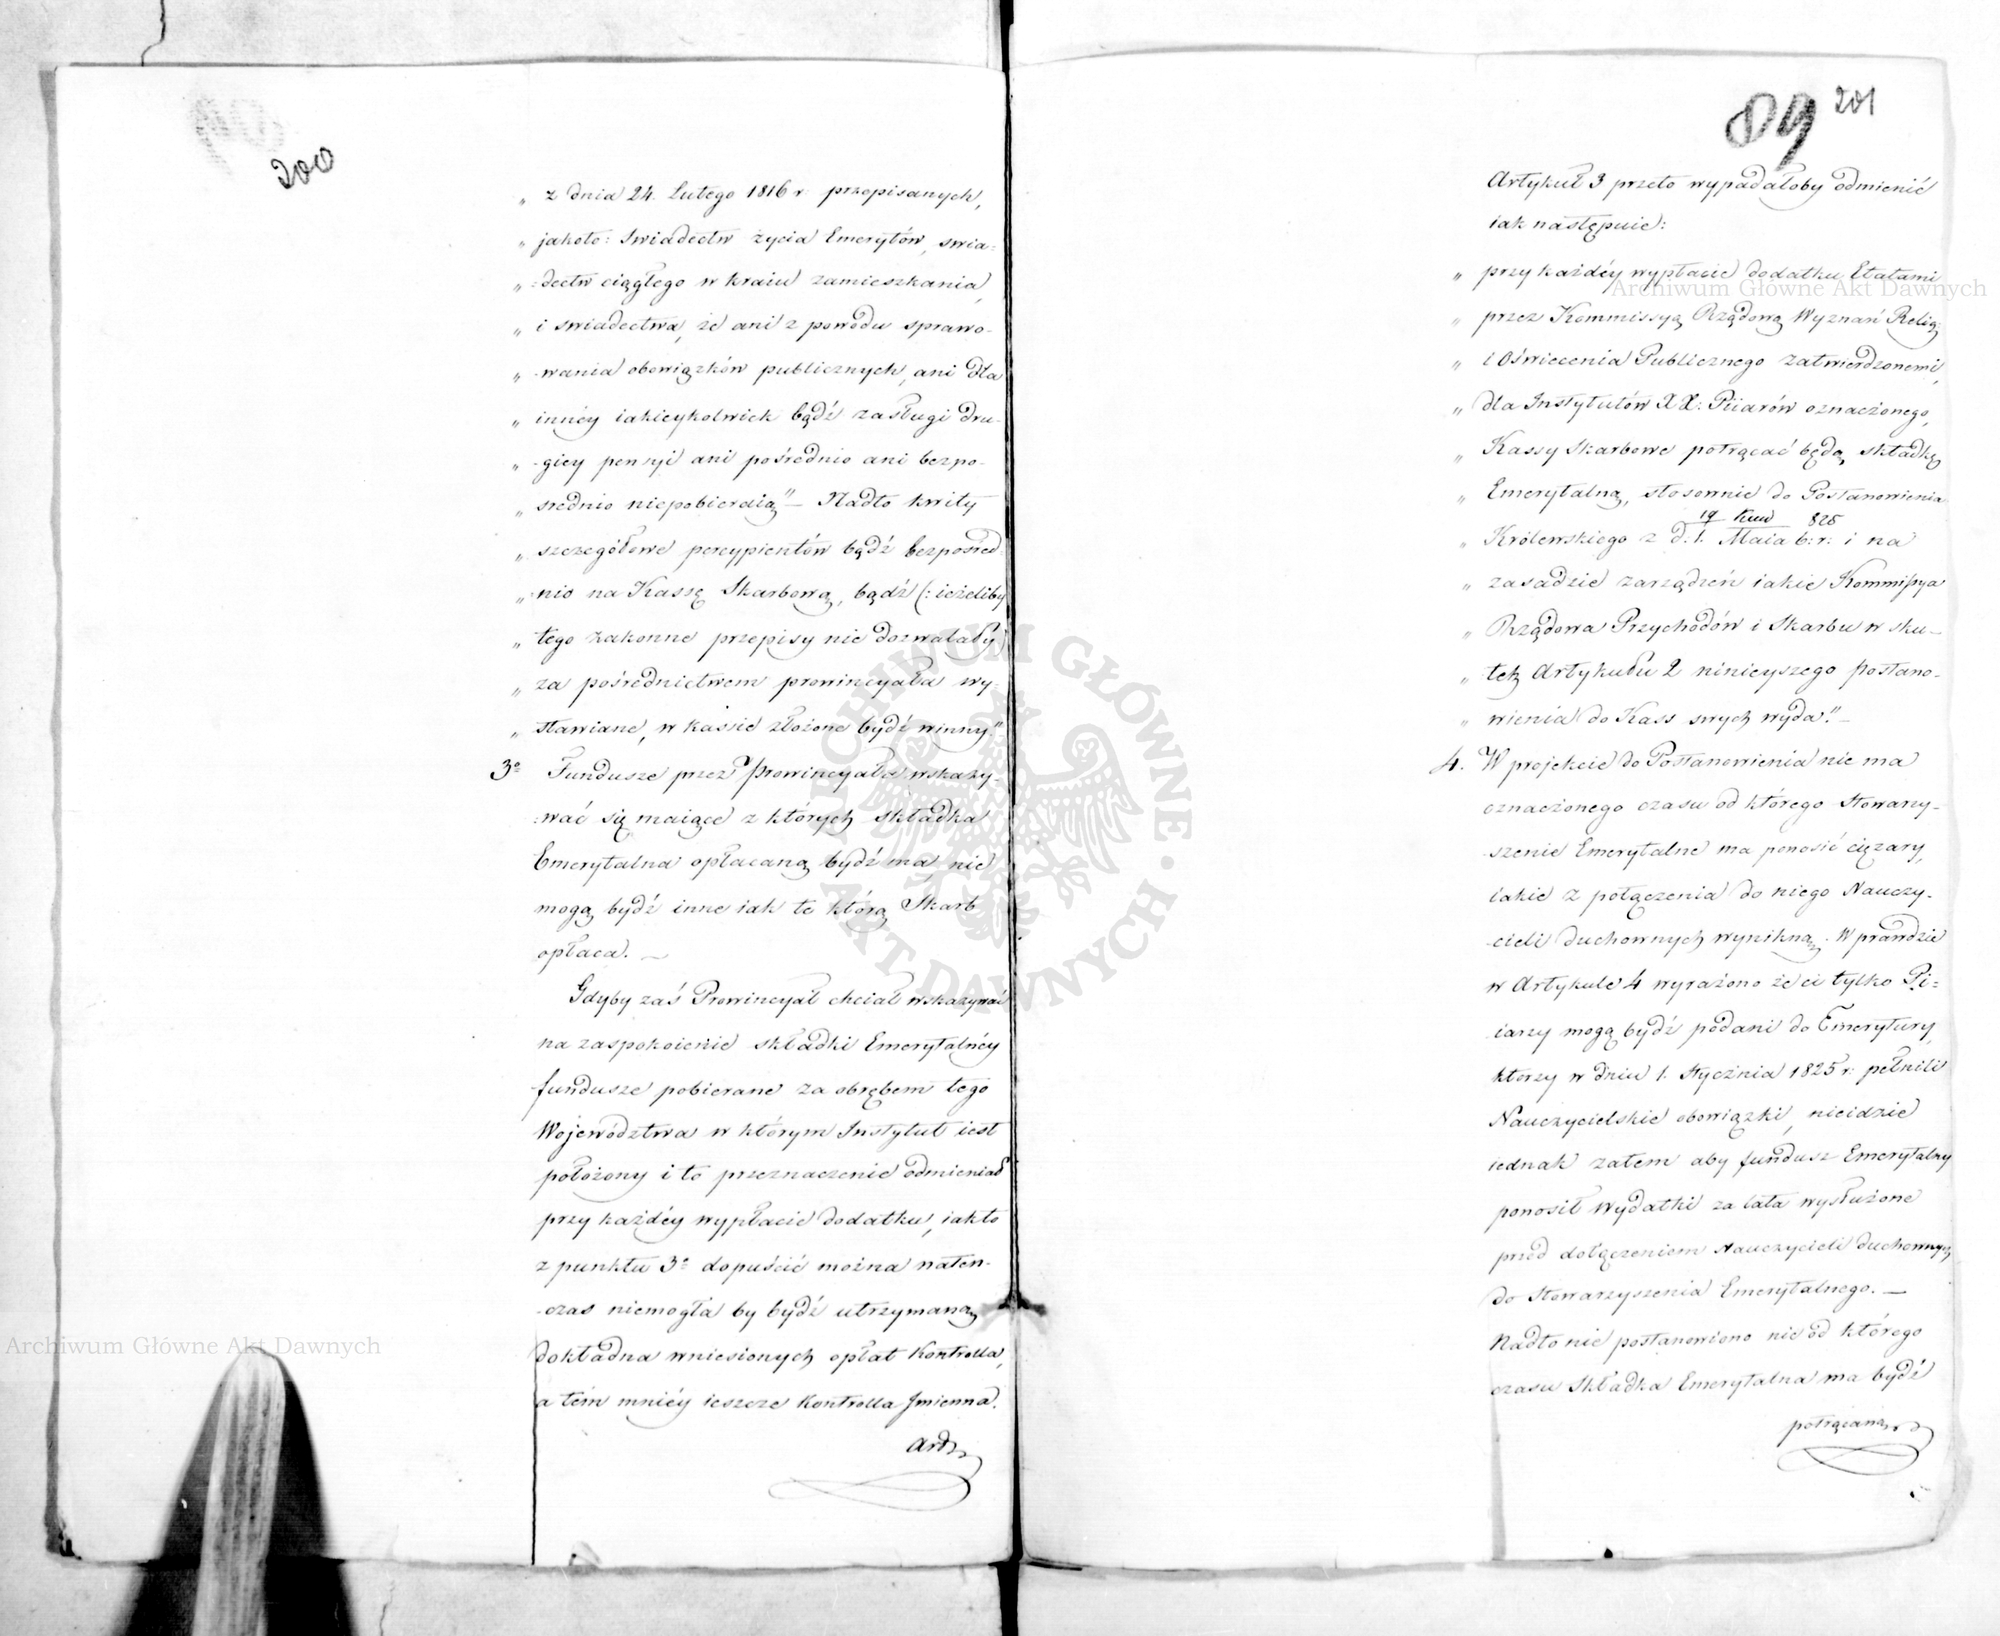 200
„ z dnia 24. Lutego 1816 r. przepisanych,
„ jakoto: Swiadectw życia Emerytów, swia:
„ :dectw ciągłego w kraiu zamieszkania,
„ i swiadectwa, że ani z powodu sprawo-
„ -wania obowiązków publicznych, ani dla
„ innéy iakieykolwiek bądź zasługi dru-
„ -giey pensyi ani pośrednio ani bezpo-
„ srednio niepobieraią" – Nadto kwity
„ szczegółowe percypientów bądź bezpośred:
„ -nio na Kassę Skarbową, bądź (: ieżeliby
„ tego zakonne przepisy nie dozwalały)
„ za pośrednictwem prowincyała wy-
„ stawiane, w kassie złożone bydź winny."
3o Fundusze przez Prowincyała wskazy-
:wać się maiące z których składka
Emerytalna opłacaną bydź ma, nie
mogą bydź inne iak te którą Skarb
opłaca. —
Gdyby zaś Prowincyał chciał wskazywać
na zaspokoienie składki Emerytalnéy
fundusze pobierane za obrębem tego
Województwa w którym Instytut iest
położony i to przeznaczenie odmieniał
przy każdéy wypłacie dodatku, iak to
z punktu 3o dopuścić można naten-
-czas niemogła by bydź utrzymaną
dokładna wniesionych opłat Kontrolla,
a tém mniéy ieszcze Kontrolla Jmienna.
Art
89 201
Artykuł 3 przeto wypadałoby odmienić
iak następuie:
„ przy każdéy wypłacie dodatku Etatami
„ przez Kommissyą Rządową Wyznań Relig:
„ i Oświecenia Publicznego zatwierdzonemi,
„ dla Instytutów XX: Piiarów oznaczonego,
„ Kassy Skarbowe potrącać będą składkę
„ Emerytalną, stosownie do Postanowienia
19 Kwie 825
„ Królewskiego z d: 1. Maia b: r: i na
„ zasadzie zarządzeń iakie Kommissya
„ Rządowa Przychodów i Skarbu w sku-
„ tek Artykułu 2 ninieyszego postano-
„ wienia do Kass swych wyda." –
4. W projekcie do Postanowienia nie ma
oznaczonego czasu od którego Stowarzy-
-szenie Emerytalne ma ponosić ciężary,
iakie z połączenia do niego Nauczy-
-cieli duchownych wynikną. Wprawdzie
w Artykule 4 wyrażono że ci tylko Pi=
iarzy mogą bydź podani do Emerytury,
ktorzy w dniu 1. Stycznia 1825 r: pełnili
Nauczycielskie obowiązki, nieidzie
iednak zatem aby fundusz Emerytalny
ponosił wydatki za lata wysłużone
przed dołączeniem Nauczycieli duchownych
do Stowarzyszenia Emerytalnego. —
Nadto nie postanowiono nic od którego
czasu Składka Emerytalna ma bydź
potrącaną
Archiwum Główne Akt Dawnych
Archiwum Główne Akt Dawnych
ARCHIWUM GŁÓWNE · AKT DAWNYCH ·